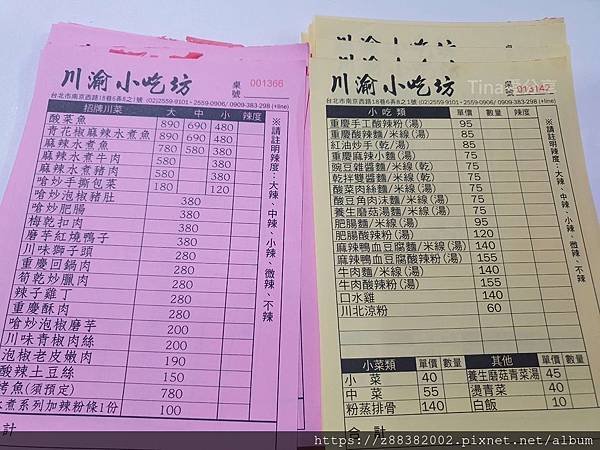 川渝小吃坊
桌號 001366
台北市南京西路18巷6弄8之1號 (02)2559-9101・2559-0906/ 0909-383-298 (+line)
招牌川菜 大 中 小 辣度
酸菜魚 890 690 480
青花椒麻辣水煮魚 890 690 480
麻辣水煮魚 780 580 380
麻辣水煮牛肉 380
麻辣水煮豬肉 380
嗆炒手撕包菜 180 120
嗆炒泡椒豬肚 380
嗆炒肥腸 380
梅乾扣肉 380
磨芋紅燒鴨子 380
川味獅子頭 280
重慶回鍋肉 280
筍乾炒臘肉 280
辣子雞丁 280
重慶酥肉 280
嗆炒泡椒磨芋 200
川味青椒肉絲 200
泡椒老皮嫩肉 190
酸辣土豆絲 150
烤魚(須預定) 780
水煮系列加辣粉條1份 100
合計
※請註明辣度:大辣、中辣、小辣、微辣、不辣
川渝小吃坊
桌號 013142
台北市南京西路18巷6弄8之1號 (02)2559-9101・2559-0906/ 0909-383-298 (+line)
小吃類 單價 數量 辣度
重慶手工酸辣粉(湯) 95
重慶酸辣麵/米線(湯) 85
紅油炒手(乾/湯) 85
重慶麻辣小麵(湯) 75
豌豆雜醬麵/米線(乾) 75
乾拌雙醬麵/米線(乾) 75
酸菜肉絲麵/米線(湯) 75
酸豆角肉沫麵/米線(湯) 75
養生蘑菇湯麵/米線(湯) 75
肥腸麵/米線(湯) 95
肥腸酸辣粉(湯) 120
麻辣鴨血豆腐麵/米線(湯) 140
麻辣鴨血豆腐酸辣粉(湯) 155
牛肉麵/米線(湯) 140
牛肉酸辣粉(湯) 155
口水雞 140
川北涼粉 60
※請註明辣度:大辣、中辣、小辣、微辣、不辣
小菜類 單價 數量
小菜 40
中菜 55
粉蒸排骨 140
其他 單價 數量
養生磨菇青菜湯 45
燙青菜 40
白飯 10
合計
https://z88382002.pixnet.net/album